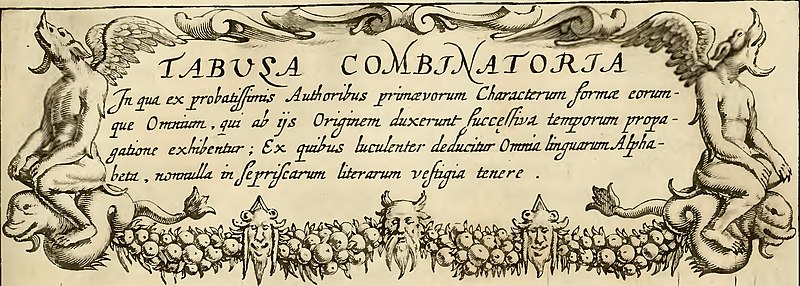 TABULA COMBINATORIA
In qua ex probatissimis Authoribus primævorum Characterum formæ eorum-
que Omnium, qui ab ijs Originem duxerunt successiva temporum propa-
gatione exhibentur; Ex quibus luculenter deducitur Omnia linguarum Alpha-
beta, nonnulla in se priscarum literarum vestigia tenere.